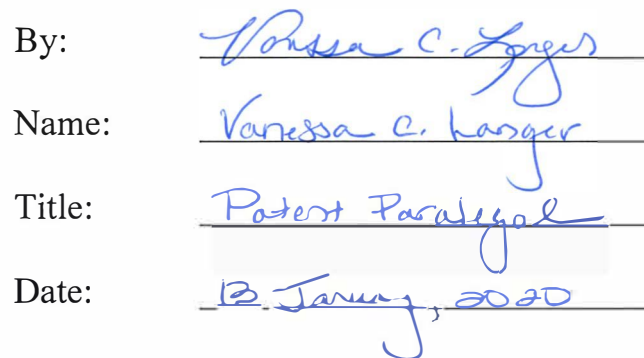 By: Vanessa C.
Name: Vanessa C.
Title: Patent Paralegal
Date: 13 January, 2020